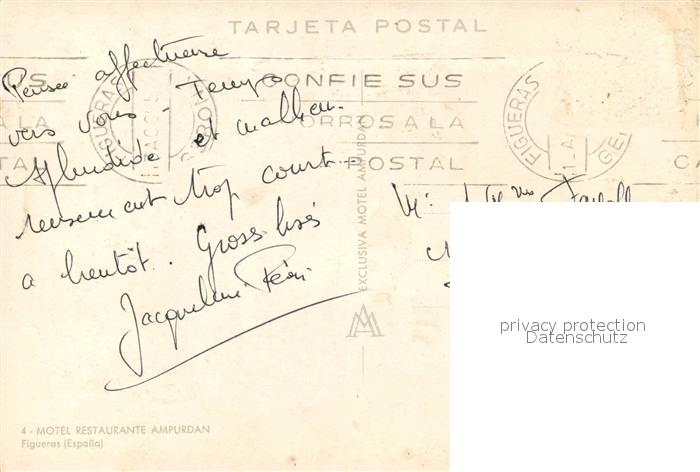 TARJETA POSTAL
Pensée affectueuse
vers vous - Temps
splendide et malheu-
reusement trop court -
a bientôt. Grosses bises
Jacqueline
CONFIE SUS
AHORROS A LA
POSTAL
FIGUERAS
GERONA
FIGUERAS
GE
CA
EXCLUSIVA MOTEL AMPURDAN
MA
privacy protection
Datenschutz
4 - MOTEL RESTAURANTE AMPURDAN
Figueras (España)